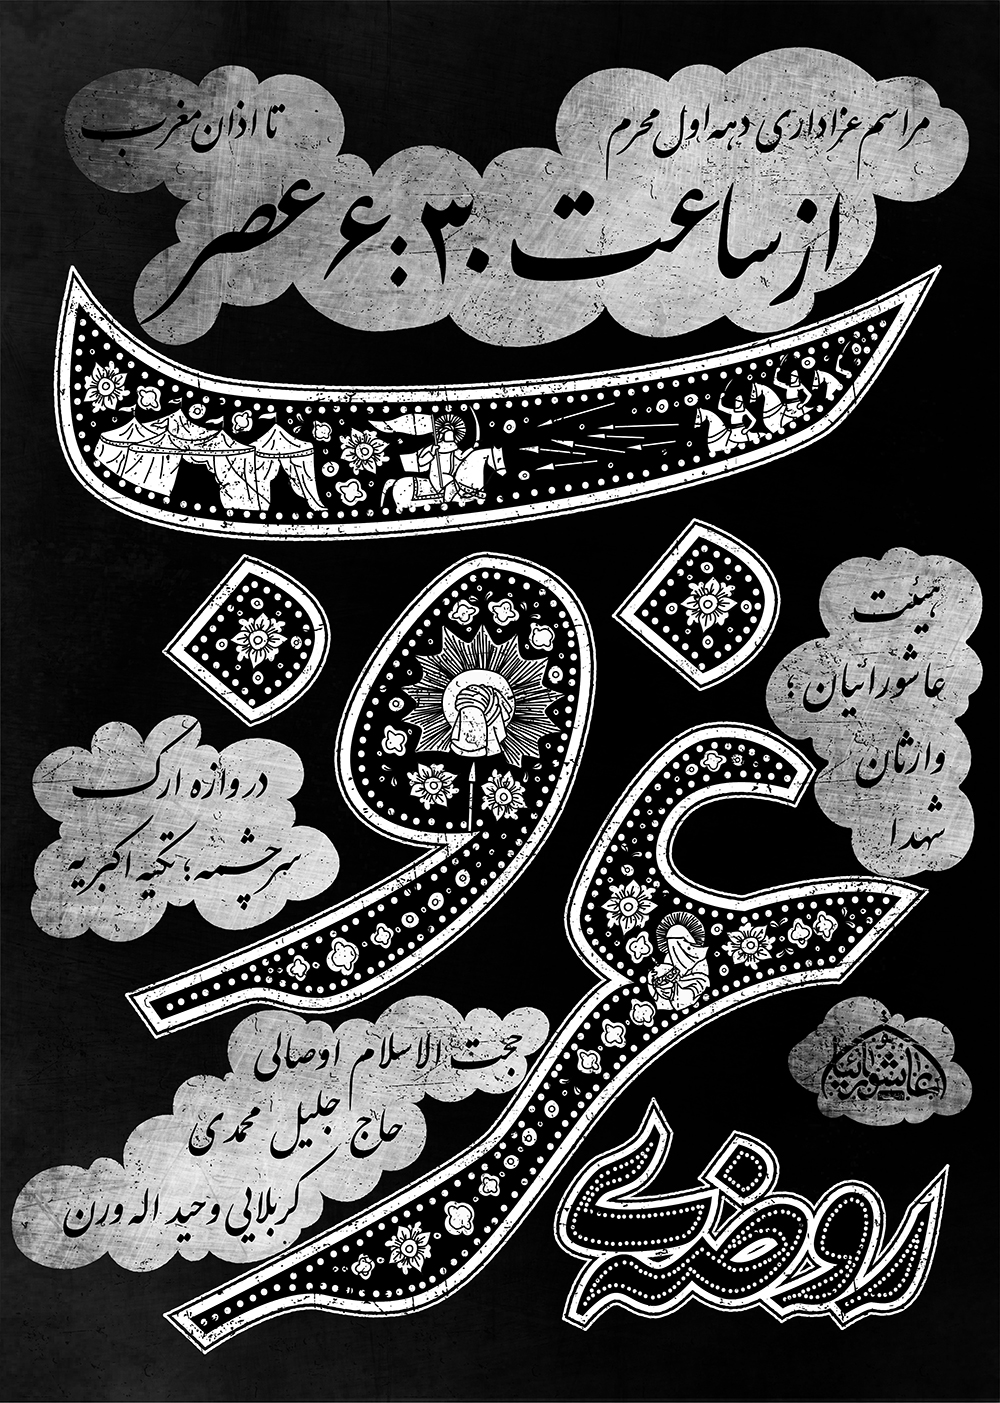 مراسم عزاداری دهه اول محرم
از ساعت ۶:۳۰ عصر
تا اذان مغرب
هیئت
عاشورائیان ؛
وارثان
شهدا
روضه ی
غروب
دروازه ارک
سرچشمه ؛ تکیه اکبریه
حجت الاسلام اوصالی
حاج جلیل محمدی
کربلایی وحید اله ورن
عاشورائیان